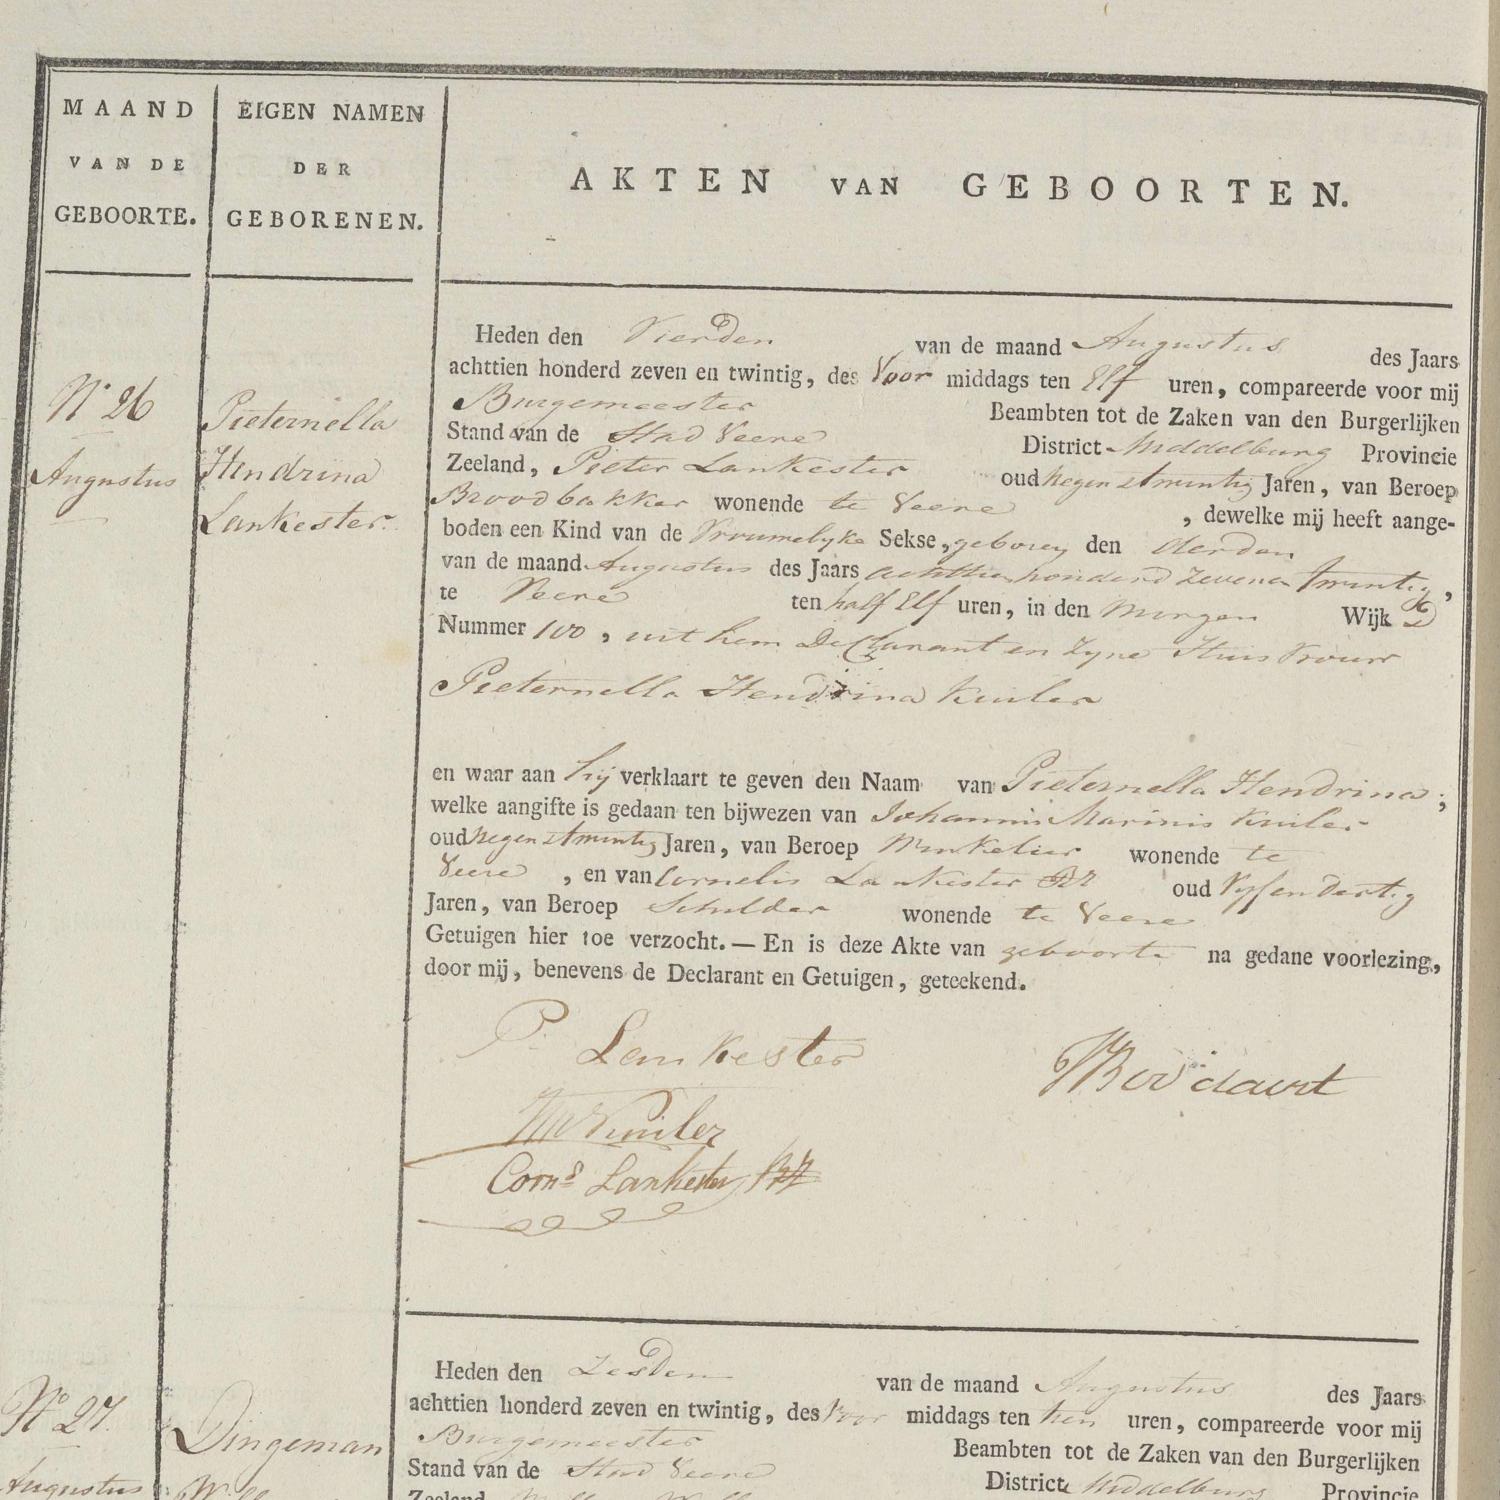 MAAND
VAN DE
GEBOORTE.
EIGEN NAMEN
DER
GEBORENEN.
AKTEN VAN GEBOORTEN.
N° 26
Augustus
Pieternella
Hendrina
Lankester
Heden den Vierden van de maand Augustus des Jaars
achttien honderd zeven en twintig, des Voor middags ten Elf uren, compareerde voor mij
Burgemeester Beambten tot de Zaken van den Burgerlijken
Stand van de Stad Veere District Middelburg Provincie
Zeeland, Pieter Lankester oud Negen & twintig Jaren, van Beroep
Broodbakker wonende te Veere, dewelke mij heeft aange-
boden een Kind van de Vrouwelyke Sekse, geboren den derden
van de maand Augustus des Jaars achttien honderd zeven en twintig,
te Veere ten half Elf uren, in den Morgen Wijk
Nummer 100, uit hem Declarant en zyne Huisvrouw
Pieternella Hendrina Kuiler
en waar aan hij verklaart te geven den Naam van Pieternella Hendrina;
welke aangifte is gedaan ten bijwezen van Johannis Marinis Kuiler
oud Negen & twintig Jaren, van Beroep Winkelier wonende te
Veere, en van Cornelis Lankester oud Vyf en dertig
Jaren, van Beroep Schilder wonende te Veere
Getuigen hier toe verzocht.— En is deze Akte van geboorte na gedane voorlezing,
door mij, benevens de Declarant en Getuigen, geteekend.
P. Lankester
Boddaert
JM Kuiler
Corns Lankester
N° 27.
Augustus
Dingeman
Heden den Zesden van de maand Augustus des Jaars
achttien honderd zeven en twintig, des Voor middags ten tien uren, compareerde voor mij
Burgemeester Beambten tot de Zaken van den Burgerlijken
Stand van de Stad Veere District Middelburg Provincie
Zeeland